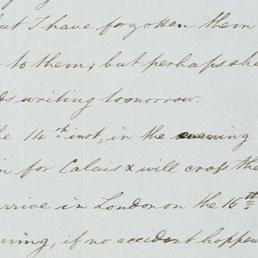 but I have forgotten them
to them; but perhaps she
writing tomorrow.
the 14th inst, in the evening
for Calais & will cross the
arrive in London on the 16th
if no accident happen